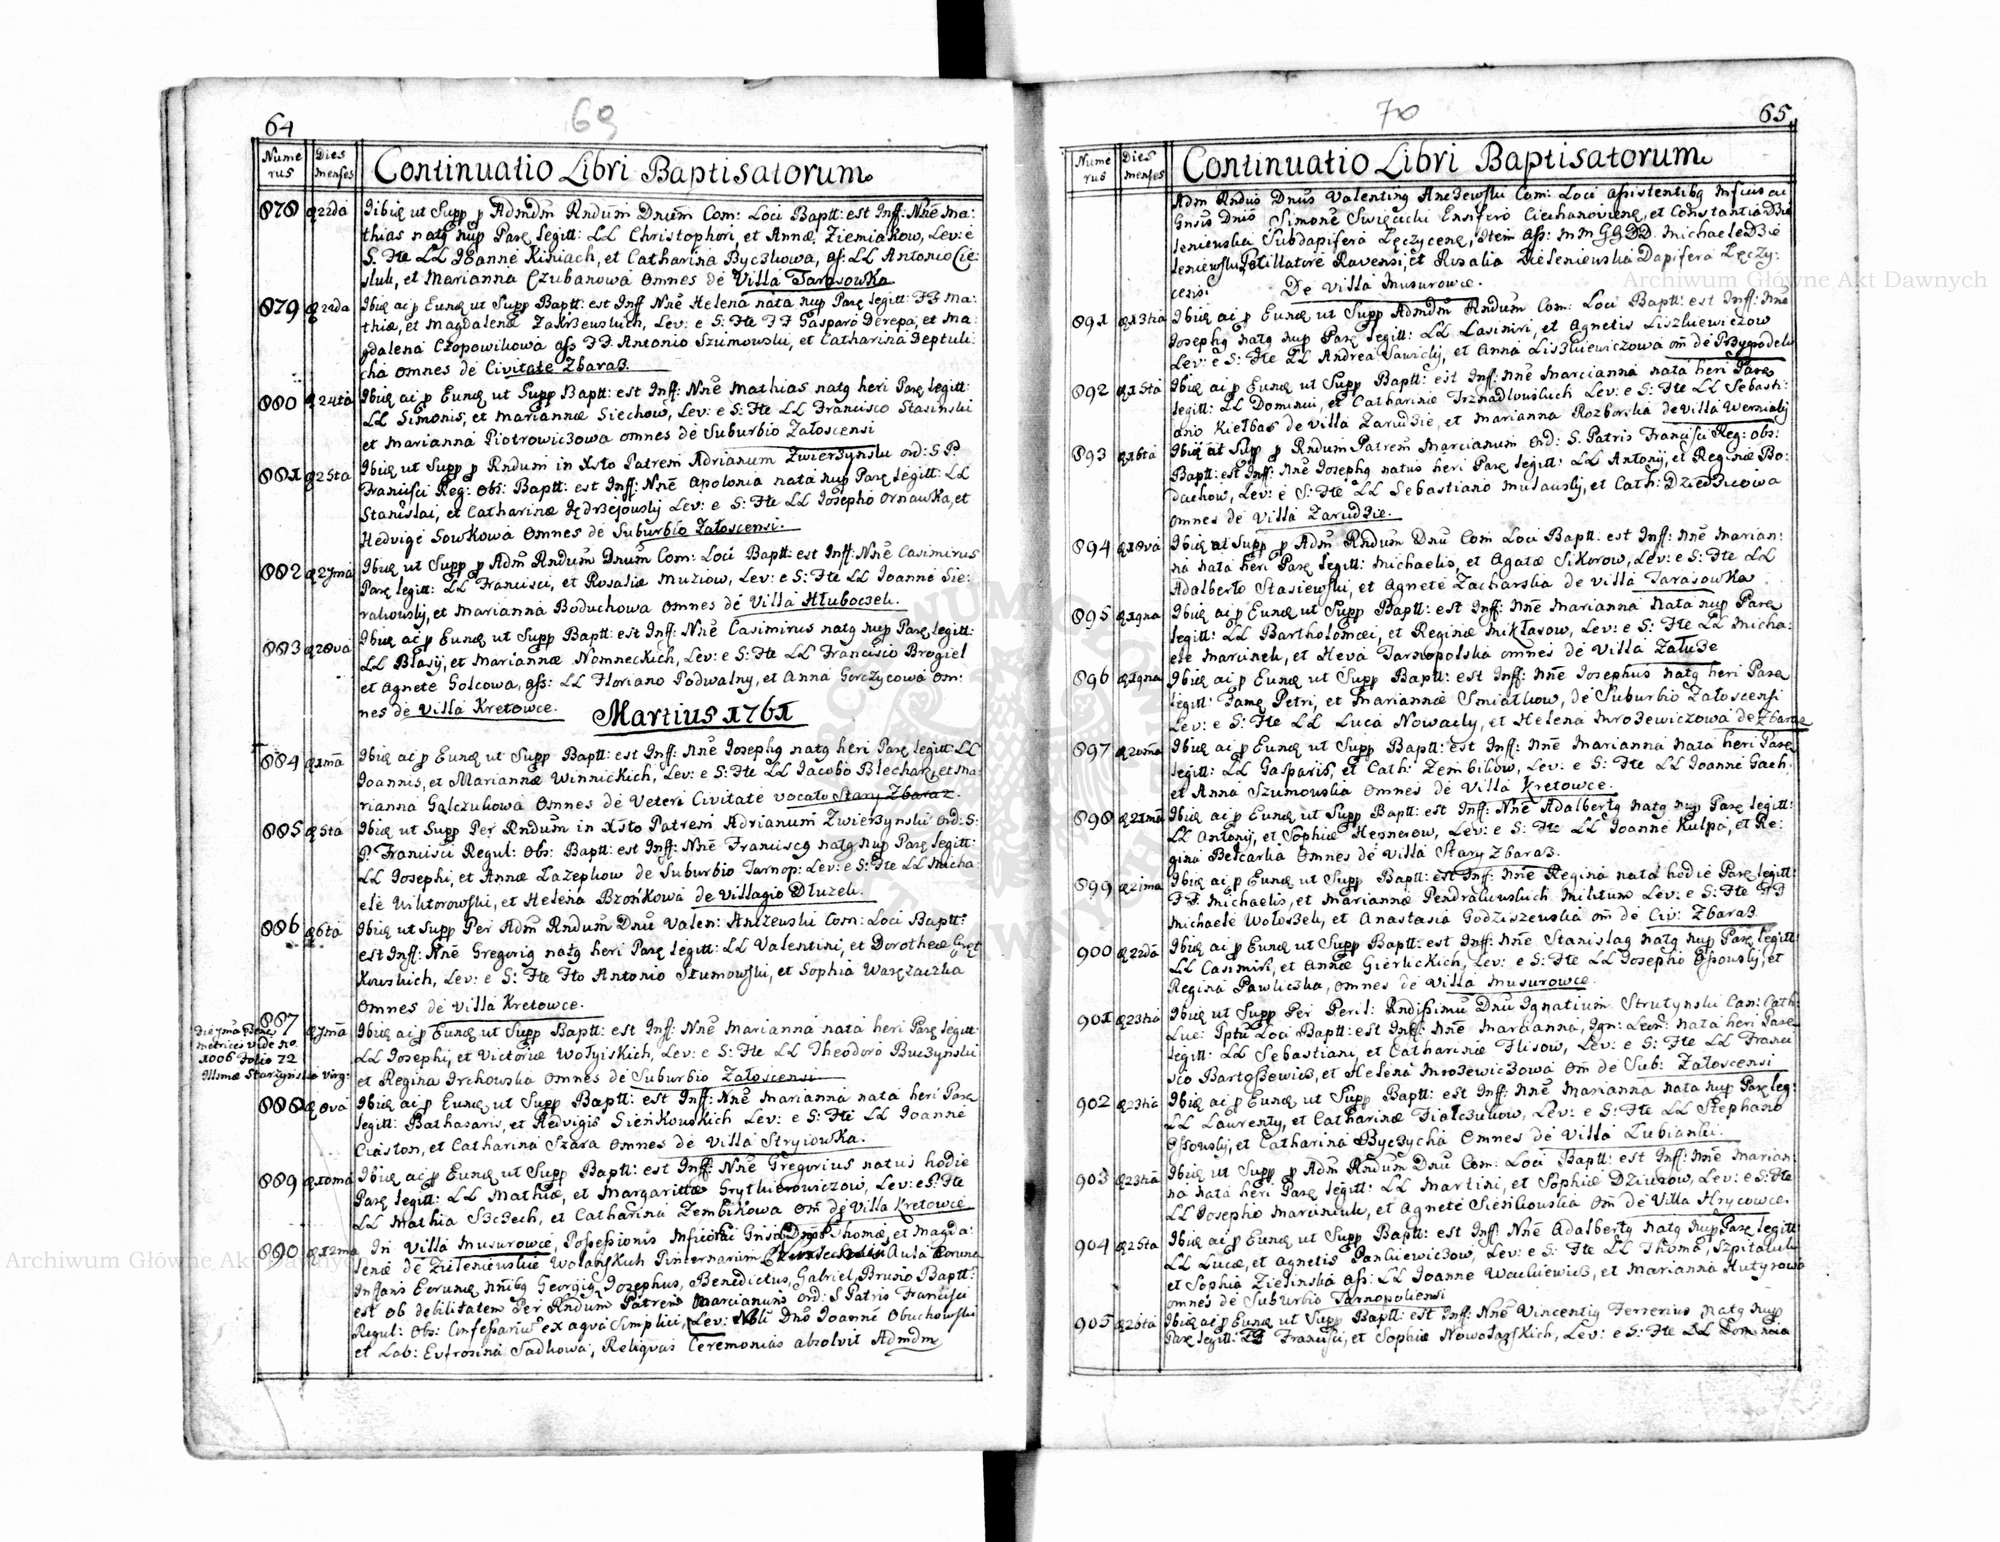 64
69
Nume
rus
Dies
menses
Continuatio Libri Baptisatorum
878 22da Ibidē ut Supp p Admdm Rndum Dnum Com: Loci Baptt: est Inff: Nnē Ma:
thias natq nup Parē legitt: LL Christophori, et Annæ Ziemiakow, Lev: è
S: Fte LL Ioanne Kiniach, et Catharina Byczkowa, ass: LL Antonio Cie:
sluk, et Marianna Czubanowa omnes de Villa Tarasowka
879 22da Ibidē ac p Eundē ut Supp Baptt: est Inff Nnē Helena nata nup Parē legitt: FF Ma:
thiæ, et Magdalenæ Zakrzewskich, Lev: e S: Fte FF Gasparo Derepa, et Ma:
gdalena Czopowikowa ass FF: Antonio Szumowski, et Catharina Deptuli:
cha omnes de Civitate Zbaraż.
880 24ta Ibidē ac p Eundē ut Supp Baptt: est Inff: Nnē Mathias natq heri Parē legitt:
LL Simonis, et Mariannæ Siechow, Lev: e S: Fte LL Francisco Stasinski
et Marianna Piotrowiczowa omnes de Suburbio Załoscensi
881 25ta Ibidē ut Supp p Rndum in Xsto Patrem Adrianum Zwierzynski ord: S P.
Francisci Reg: Obs: Baptt: est Inff: Nnē Apolonia nata nup Parē legitt: LL
Stanislai, et Catharinæ Jędrzejowsky Lev: e S: Fte LL Josepho Ornawka, et
Hedvige Sowkowa omnes de Suburbio Załoscensi.
882 27ma Ibidē ut Supp p Adm Rndum Dnum Com: Loci Baptt: est Inff: Nnē Casimirus
Parē legitt: LL Francisci, et Rosaliæ Muziow, Lev: e S: Fte LL Joanne Sie:
rakowsky, et Marianna Boduchowa omnes de Villa Hłuboczek.
883 28va Ibidē ac p Eundē ut Supp Baptt: est Inff: Nnē Casimirus natq nup Parē legitt:
LL Blasÿ, et Mariannæ Nomneckich, Lev: e S: Fte LL Francisco Brogiel
et Agnete Golcowa, ass: LL Floriano Podwalny, et Anna Gorczycowa om:
nes de Villa Kretowce.
Martius 1761
884 1ma Ibidē ac p Eundē ut Supp Baptt: est Inff: Nnē Josephq natq heri Parē legitt LL
Joannis, et Mariannæ Winnickich, Lev: e S: Fte LL Jacobo Blechar, et Ma:
rianna Galczukowa omnes de Veteri Civitate vocato Stary Zbaraz.
885 5ta Ibidē ut Supp Per Rndum in Xsto Patrem Adrianum Zwierzynski ord: S:
P. Francisci Regul: Obs: Baptt: est Inff: Nnē Franciscq natq nup Parē legitt:
LL Josephi, et Annæ Łazepkow de Suburbio Tarnop: Lev: e S: Fte LL Micha:
ele Wiktorowski, et Helena Bzońkowa de Villagio Dłużek.
886 6ta Ibidē ut Supp Per Adm Rndum Dnū Valen: Anżewski Com: Loci Baptt:
est Inff: Nnē Gregoriq natq heri Parē legitt: LL Valentini, et Dorotheæ Gręt
kowskich, Lev: e S: Fte Fto Antonio Słumowski, et Sophia Waręzaczka
omnes de Villa Kretowce.
887 7ma Ibidē ac p Eundē ut Supp Baptt: est Inff: Nnē Marianna nata heri Parē legitt:
LL Josephi, et Victoriæ Wołyiskich, Lev: e S: Fte LL Theodoro Buczynski
et Regina Irchowska omnes de Suburbio Załoscensi
Die 7ma
metrices vide no
1006 Folio 72
Illsmæ Starzynska virg:
888 8va Ibidē ac p Eundē ut Supp Baptt: est Inff: Nnē Marianna nata heri Parē
legitt: Bathasaris, et Hedvigis Sieńkowskich Lev: e S: Fte LL Joanne
Ciaston, et Catharina Szara omnes de Villa Stryiowka.
889 10ma Ibidē ac p Eundē ut Supp Baptt: est Inff: Nnē Gregorius natus hodie
Parē legitt: LL Mathiæ, et Margarittæ Grytkierowiczow, Lev: e S: Fte
LL Mathia Szczech, et Catharina Zembikowa om de Villa Kretowce
890 12ma In Villa Musurowce, Possessionis Mfciorū Gnsoq Dnoq Thomæ, et Magda:
lenæ de Zieleniewskie Wolanskich Pincernarum Aula
Infans Eorundē Nnibq Georgiq Josephus, Benedictus, Gabriel, Bruno Baptt:
est ob debilitatem Per Rndum Patrem Marcianum ord: S Patris Francisci
Regul: Obs: Confessariū ex aqva simplici, Lev: Nbli Dno Joanne Obuchowski
et Lab: Evfrosina Sadkowa, Reliqvas Ceremonias absolvit Admdm
70
65
Nume
rus
Dies
menses
Continuatio Libri Baptisatorum
Adm Rndus Dnus Valentinq Anżewski Com: Loci assistentibq Mfcis ac
Gnsis Dnis Simone Swięcicki Ensifero Ciechanoviene, et Constantia Zie
leniewska Subdapifera Łęczycene, Item ass: MM GG DD Michaele Zie
leniewski, Potillatore Ravensi, et Rosalia Zieleniewska Dapifera Łęczy:
censi. De Villa Musurowce.
891 13tia Ibidē ac p Eundē ut Supp Admdm Rndum Com: Loci Baptt: est Inff: Nnē
Josephq natq nup Parē legitt: LL Casimiri, et Agnetis Liszkiewiczow
Lev: e S: Fte LL Andrea Sawicky, et Anna Liszkiewiczowa om de Przygrodek
892 15ta Ibidē ac p Eundē ut Supp Baptt: est Inff: Nnē Marcianna nata heri Parē
legitt: LL Dominici, et Catharinæ Trznadlowskich Lev: e S: Fte LL Sebasti:
ano Kiełbas de Villa Zarudzie, et Marianna Rozborska de Villa Werniaky
893 16ta Ibidē ut Supp p Rndum Patrem Marcianum ord: S. Patris Francisci Reg: Obs:
Baptt: est Inff: Nnē Josephq natus heri Parē legitt: LL Antony, et Reginæ Bo:
dachow, Lev: e S: Fte LL Sebastiano Musausky, et Cath: Dziedzicowa
omnes de Villa Zarudzie.
894 18va Ibidē ut Supp p Adm Rndum Dnū Com Loci Baptt: est Inff: Nnē Marian:
na nata heri Parē legitt: Michaelis, et Agatæ Sikorow, Lev: e S: Fte LL
Adalberto Stasiewski, et Agnete Zacharska de Villa Tarasowka
895 19na Ibidē ac p Eundē ut Supp Baptt: est Inff: Nnē Marianna nata nup Parē
legitt: LL Bartholomæi, et Reginæ Mikłasow, Lev: e S: Fte LL Micha:
ele Marcinek, et Heva Tarnopolska omnes de Villa Załuże
896 19na Ibidē ac p Eundē ut Supp Baptt: est Inff: Nnē Josephus natq heri Parē
legitt: Famq Petri, et Mariannæ Smiałkow, de Suburbio Załoscensi
Lev: e S: Fte LL Luca Nowacky, et Helena Mrozewiczowa de Zbaraz
897 20ma Ibidē ac p Eundē ut Supp Baptt: est Inff: Nnē Marianna nata heri Parē
legitt: LL Gasparis, et Cath: Zembikow, Lev: e S: Fte LL Joanne Gach,
et Anna Szumowska omnes de Villa Kretowce.
898 21ma Ibidē ac p Eundē ut Supp Baptt: est Inff: Nnē Adalbertq natq nup Parē legitt:
LL Antony, et Sophiæ Hepnerow, Lev: e S: Fte LL Joanne Kulpa, et Re:
gina Bełcarka omnes de Villa Stary Zbaraż.
899 21ma Ibidē ac p Eundē ut Supp Baptt: est Inff: Nnē Regina nata hodie Parē legitt:
FF. Michaelis, et Mariannæ Pendrakowskich Militum Lev: e S: Fte FF
Michaele Wołoszek, et Anastasia Godziszewska om de Civ: Zbaraż.
900 22da Ibidē ac p Eundē ut Supp Baptt: est Inff: Nnē Stanislaq natq nup Parē legitt
LL Casimiri, et Annæ Gierlickich, Lev: e S: Fte LL Josepho Ossowsky, et
Regina Pawliczka, omnes de Villa Musurowce.
901 23tia Ibidē ut Supp Per Peril: Rndissimū Dnū Ignatium Strutynski Can: Cath:
Luc: Pptū Loci Baptt: est Inff: Nnē Marcianna, Ign: Leon: nata heri Parē
legitt: LL Sebastiani, et Catharinæ Flisow, Lev: e S: Fte LL Franci
sco Bartoszewicz, et Helena Mrozewiczowa om de Sub: Załoscensi
902 23tia Ibidē ac p Eundē ut Supp Baptt: est Inff: Nnē Marianna nata nup Parē leg:
LL Laurenty, et Catharinæ Fiałczukow, Lev: e S: Fte LL Stephano
Ossowsky, et Catharina Byczycha omnes de Villa Łubianki.
903 23tia Ibidē ut Supp p Adm Rndum Dnū Com: Loci Baptt: est Inff: Nnē Marian:
na nata heri Parē legitt: LL Martini, et Sophiæ Dziurow, Lev: e S: Fte
LL Josepho Marciniuk, et Agnete Sieńkowska om de Villa Hrycowce.
904 25ta Ibidē ac p Eundē ut Supp Baptt: est Inff: Nnē Adalbertq natq nup Parē legitt
LL Lucæ, et Agnetis Pankiewiczow, Lev: e S: Fte LL Thoma, Szpitaluk
et Sophia Zielinska ass: LL Joanne Wackiewicz, et Marianna Hutyrowa
omnes de Suburbio Tarnopoliensi
905 26ta Ibidē ac p Eundē ut Supp Baptt: est Inff: Nnē Vincentiq Ferrerius natq nup
Parē legitt: FF Francisci, et Sophiæ Nowołazskich, Lev: e S: Fte LL
Archiwum Główne Akt Dawnych
Archiwum Główne Akt Dawnych
ARCHIWUM GŁÓWNE AKT DAWNYCH